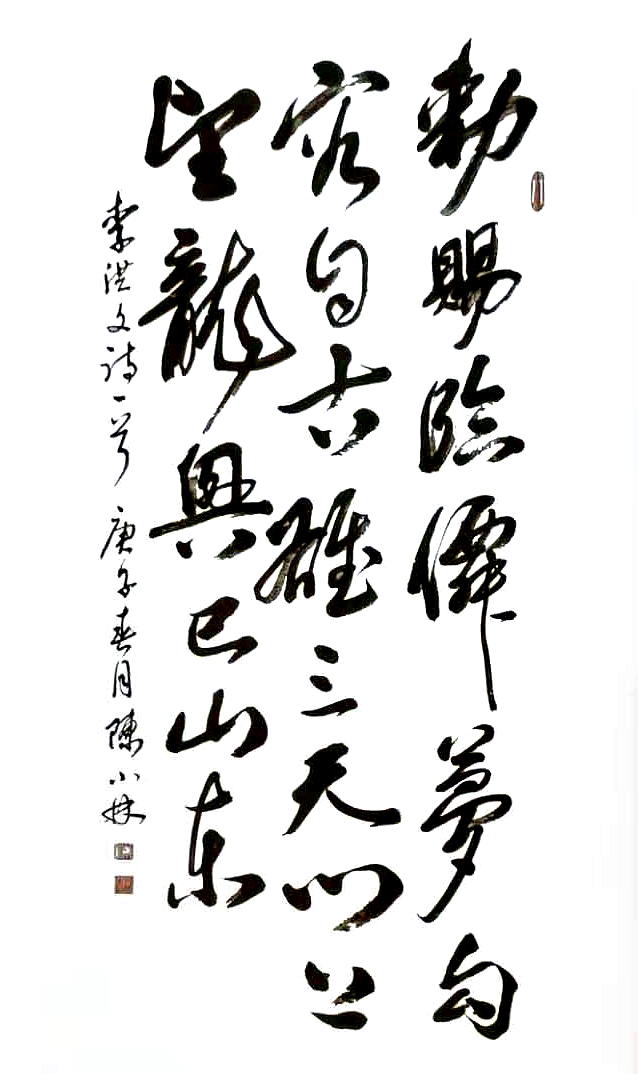 勅賜臨僊夢勾
容自古雄三天门上
望龍興已山东
李洪文詩一首 庚子春月陳小妹